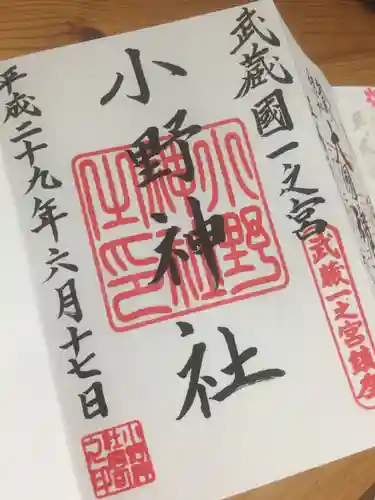 武蔵國一之宮
小野神社
平成二十九年六月十七日
小野神社之印
武蔵一之宮鎮座